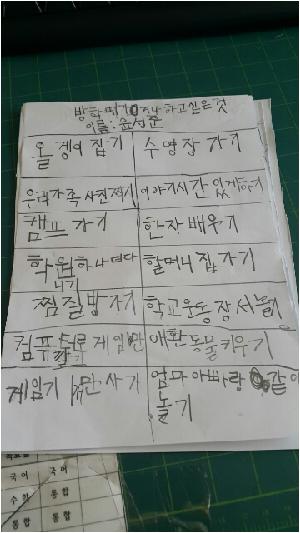 방학때 10가지 하고싶은것
이름: 윤성준
올챙이 잡기 수영장 가기
우리가족 사진찍기 이야기시간 있게하기
캠프 가기 한자 배우기
학원하나더다
니기 할머니 집 가기
찜질방 가기 학교운동장서놀기
컴퓨터로 게임만 애완동물키우기
들기
게임기 만사기 엄마 아빠랑 같이
놀기
국어 국어
수학 통합
통합 통합